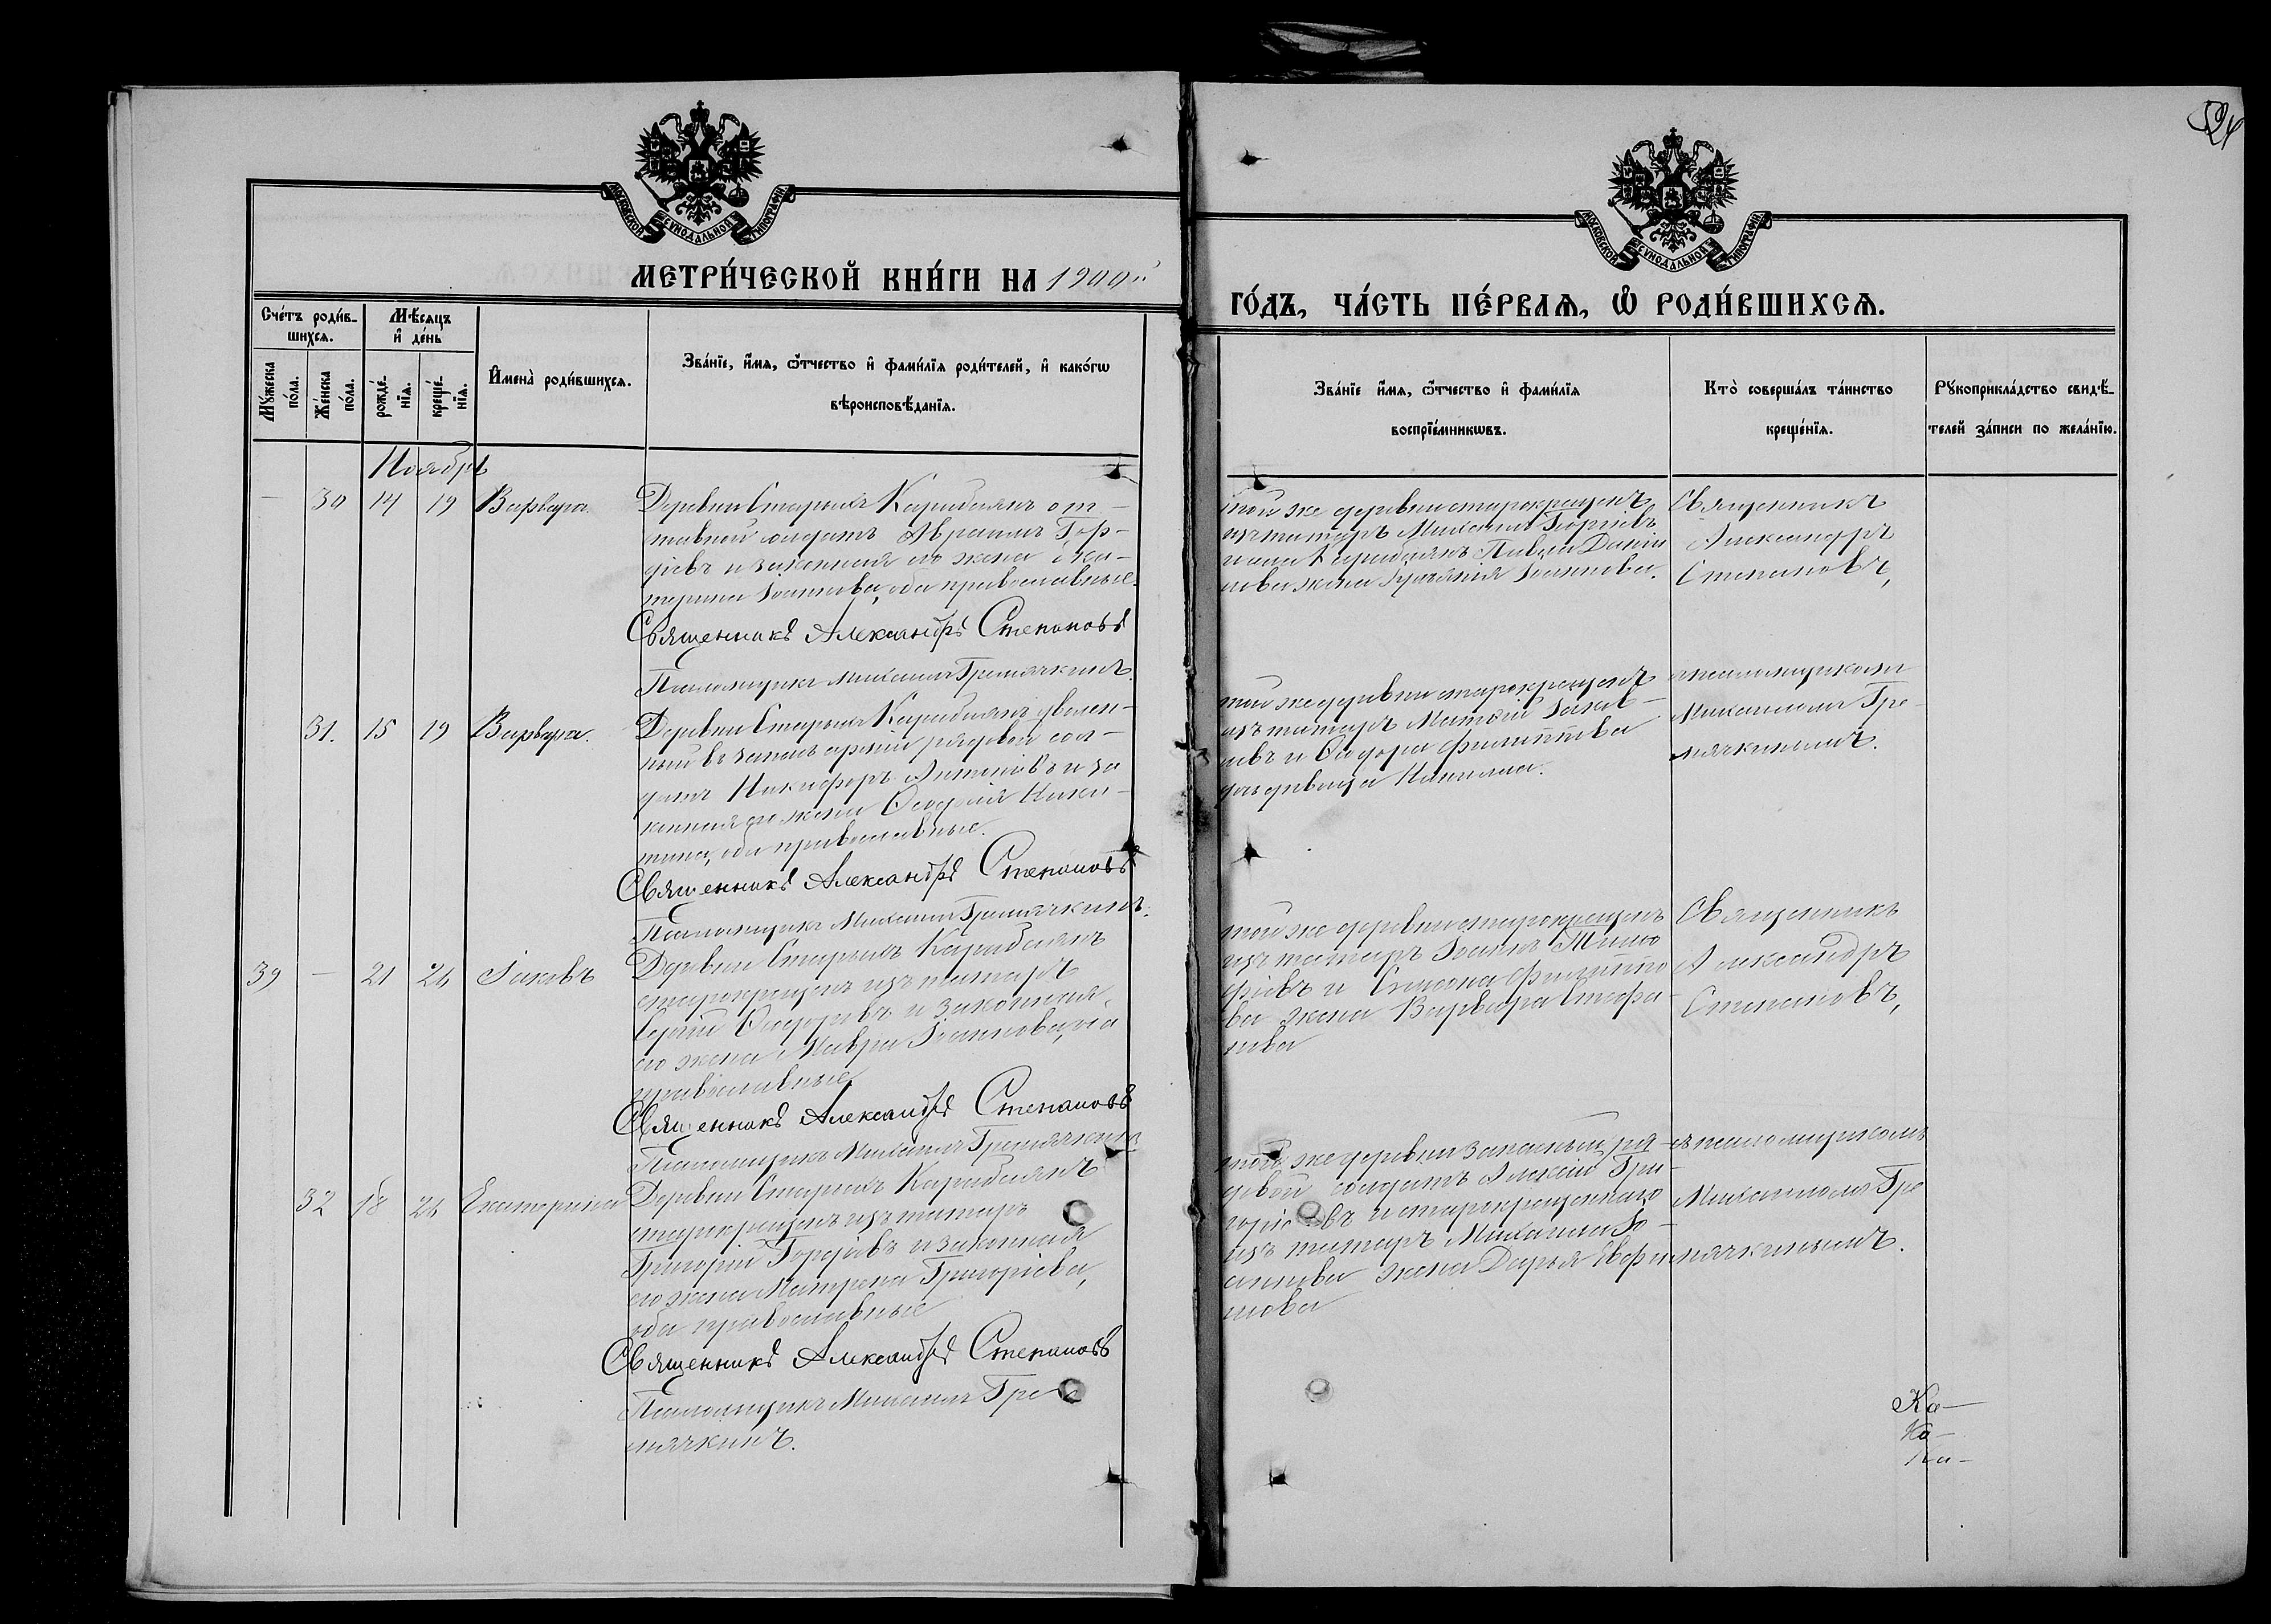 524
МОСКОВСКОЙ СѴНОДАЛЬНОЙ ТИПОГРАФІИ
МОСКОВСКОЙ СѴНОДАЛЬНОЙ ТИПОГРАФІИ
МЕТРИ́ЧЕСКОЙ КНИ́ГИ НА 1900й
ГО́ДЪ, ЧА́СТЬ ПЕ́РВАѦ, Ѡ҆ РОДИ́ВШИХСѦ.
Сче́тъ роди́в-
шихсѧ.
Мꙋ́жеска по́ла.
Же́нска по́ла.
Мѣ́сѧцъ
и҆ де́нь
рожде́-
нїѧ.
креще́-
нїѧ.
И҆мена̀ роди́вшихсѧ.
Зва́нїе, и҆́мѧ, ѻ҆́тчество и҆ фами́лїѧ роди́телей, и҆ како́гѡ
вѣроисповѣ́данїѧ.
Зва́нїе и҆́мѧ, ѻ҆́тчество и҆ фами́лїѧ
воспрїе́мникѡвъ.
Кто̀ соверша́лъ та́инство
креще́нїѧ.
Рꙋкоприкла́дство свидѣ́-
телей за́писи по жела́нїю.
Ноябрь
— 30 14 19 Варвара.
Деревни Старыхъ Карабаянъ от-
ставной солдатъ Авраамъ Гор-
діевъ и законная его жена Ека-
терина Іоаннова, оба православные.
Священникъ Александръ Степановъ
Псаломщикъ Михаилъ Гремячкинъ.
той же деревни старокрещенъ
изъ татаръ Михаилъ Георгіевъ
Карабаянъ Павла Дании
лова жена Іоаннова.
Священникъ
Александръ
Степановъ,
31. 15 19 Варвара.
Деревни Старыхъ Карабаянъ уволен-
ный въ запасъ арміи рядовой сол-
датъ Никифоръ Антоновъ и за
конная его жена Ѳеодосія Ники-
тина, оба православные.
Священникъ Александръ Степановъ
Псаломщикъ Михаилъ Гремячкинъ.
той же деревни старокрещенъ
изъ татаръ Матѳій Іаков-
левъ и Ѳеодора Филиппова
дочь девица
псаломщикомъ
Михаиломъ Гре-
мячкинымъ.
39 — 21 26 Іаковъ
Деревни Старыхъ Карабаянъ
старокрещенъ изъ татаръ
Сергій Ѳеодоровъ и законная
его жена Мавра Іоаннова, оба
православные
Священникъ Александръ Степановъ
Псаломщикъ Михаилъ Гремячкинъ
той же деревни старокрещенъ
изъ татаръ Іоаннъ Тимо
фіевъ и Симона Филиппо
ва жена Варвара Стефа
нова
Священникъ
Александръ
Степановъ,
32 18 26 Екатерина
Деревни Старыхъ Карабаянъ
старокрещенъ изъ татаръ
Григорій Гордіевъ и законная
его жена Матрона Григоріева,
оба православные
Священникъ Александръ Степановъ
Псаломщикъ Михаилъ Гре-
мячкинъ.
той же деревни запасный ря-
довой солдатъ Алексій Гри-
горіевъ и старокрещеннаго
изъ татаръ Михаила Іо-
аннова жена Дарья Евфи
мова
съ псаломщикомъ
Михаиломъ Гре
мячкинымъ.
Ка—
Ка—
Ка—